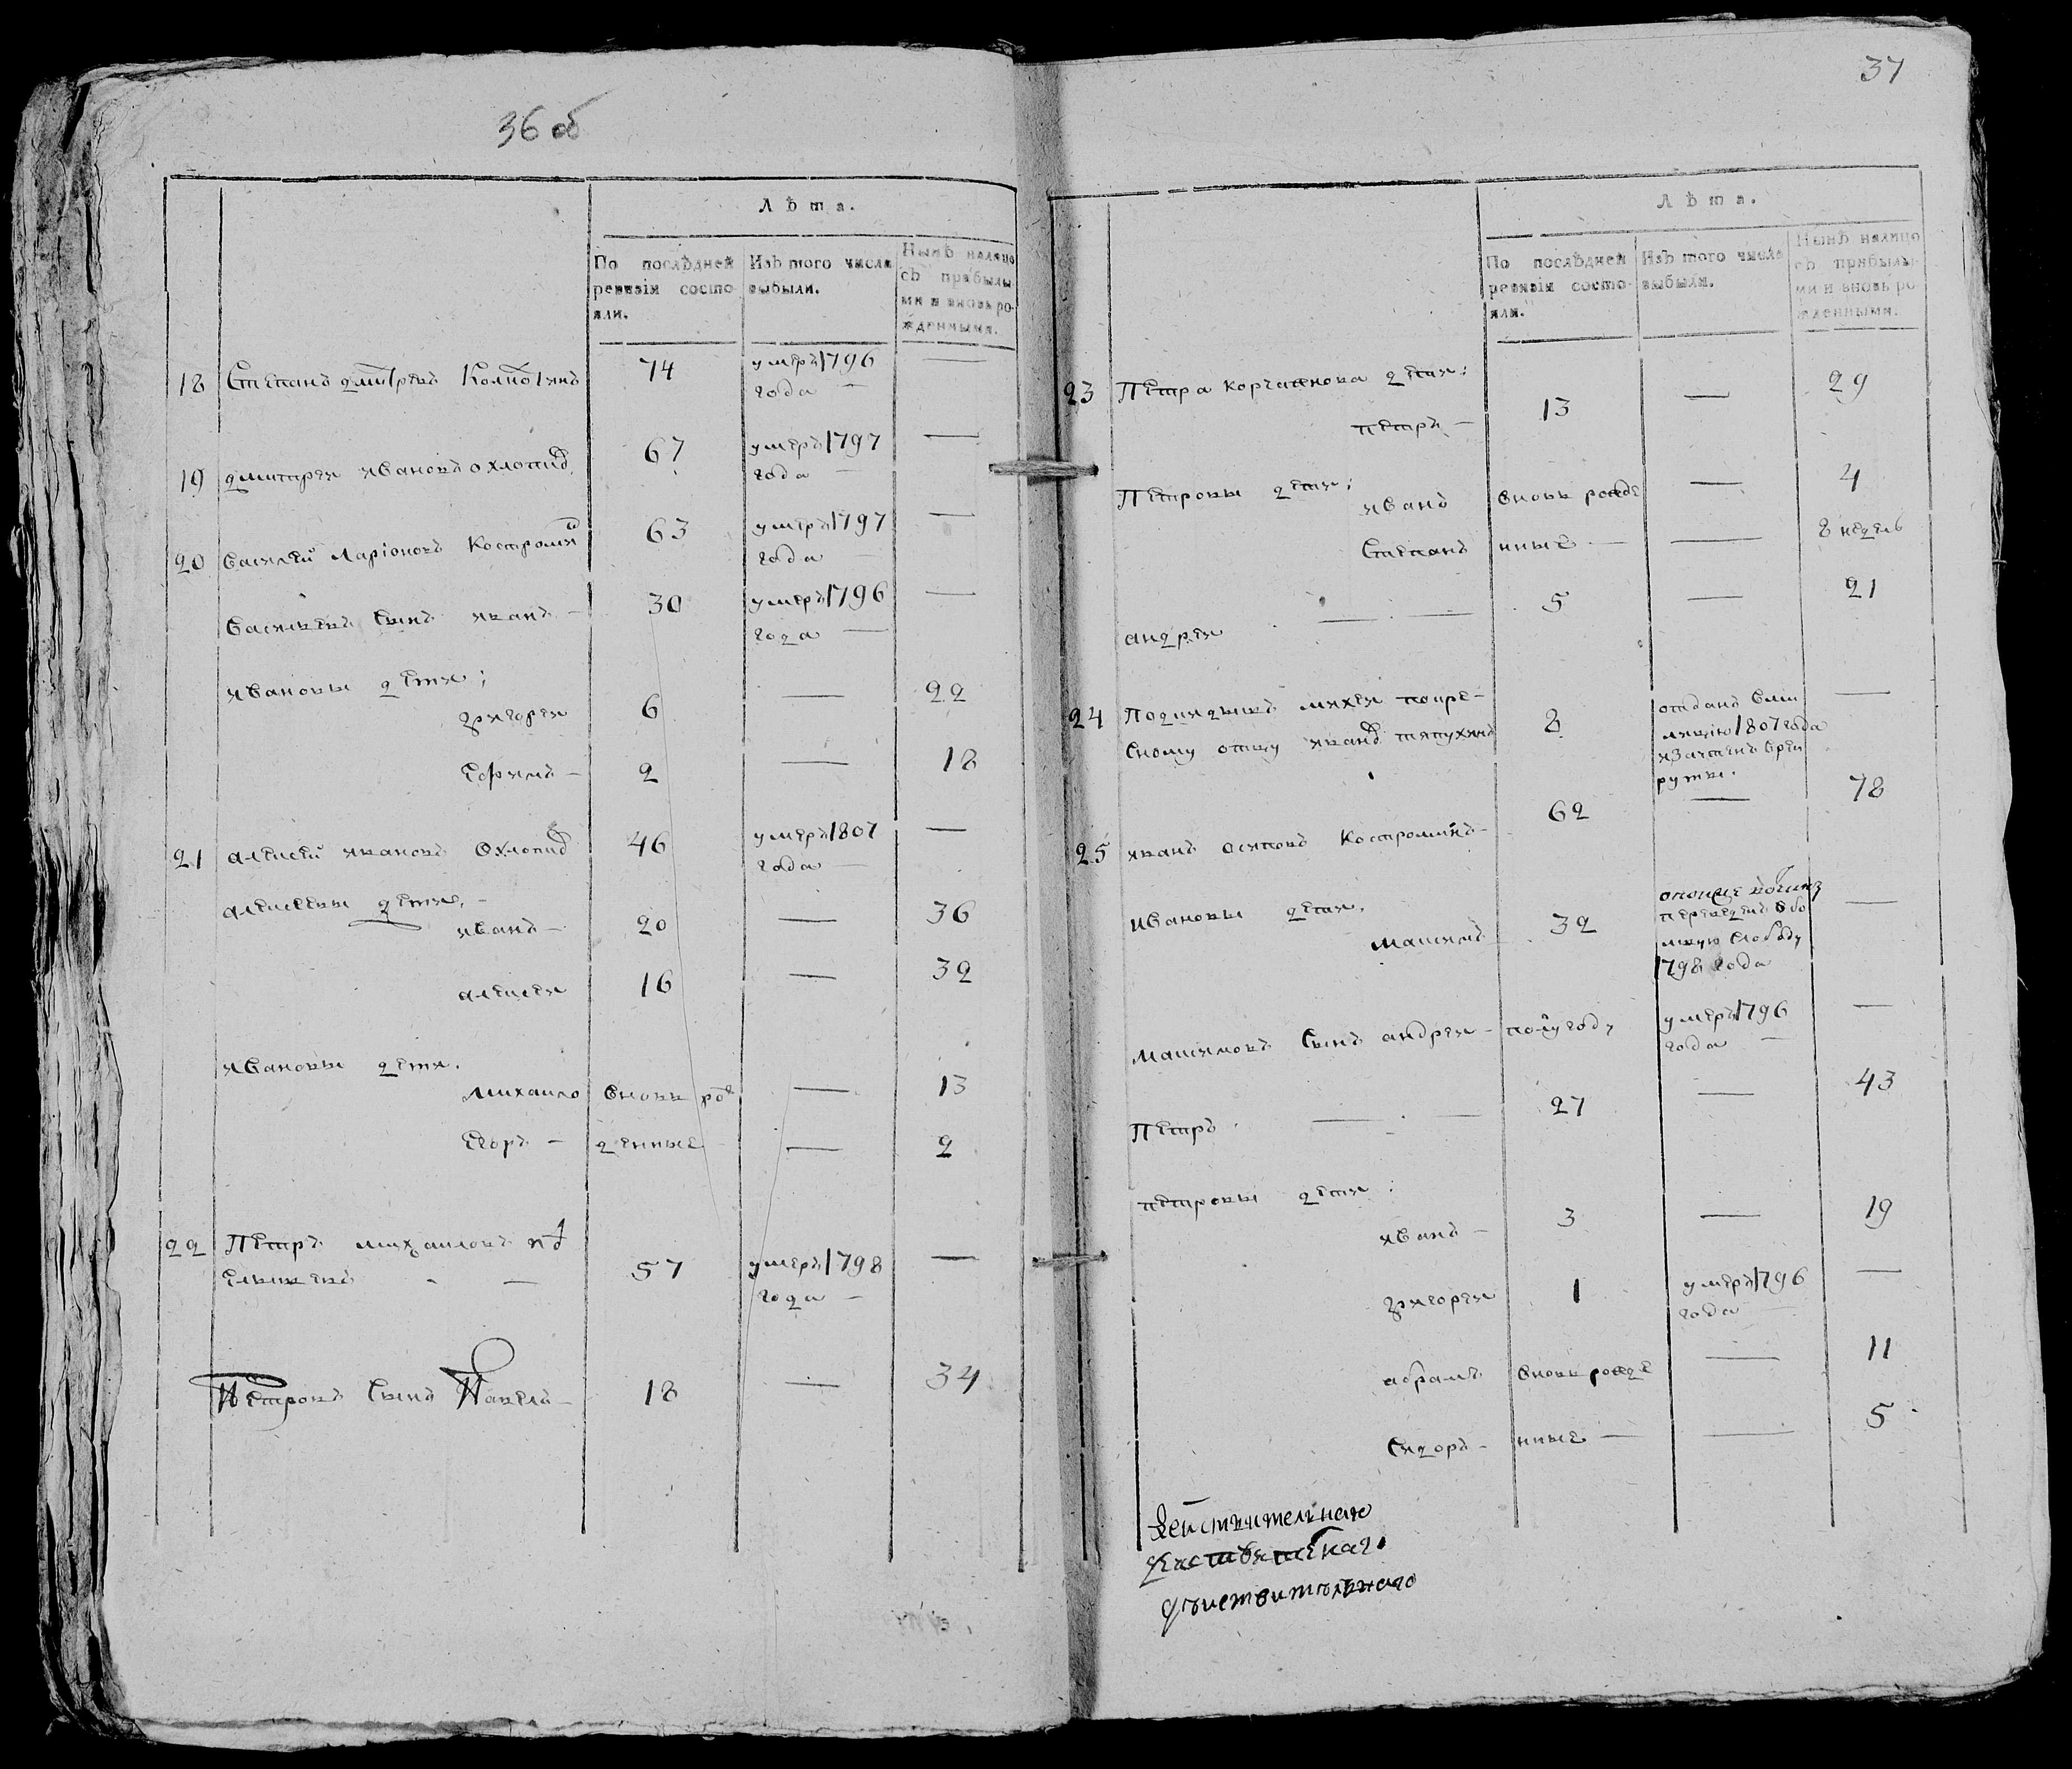 36 об
Лѣта.
По послѣдней ревизіи состояли.
Изъ того числа выбыли.
Нынѣ налицо съ прибылыми и вновь рожденными.
18 Степанъ дмитревъ 74 умеръ 1796 —
года —
19 дмитреи ивановъ охлопко 67 умеръ 1797 —
года —
20 василей Ларіоновъ Костроми 63 умеръ 1797 —
года —
васильевъ сынъ иванъ — 30 умеръ 1796 —
года —
ивановы дети;
григореи 6 — 22
ефимъ — 2 — 18
21 алексей ивановъ 46 умеръ 1807 —
года —
алексеевы дети, —
иванъ — 20 — 36
алексеи 16 — 32
ивановы дети.
михаило вновь рож — 13
егоръ — денные — 2
22 Петръ михаиловъ
57 умеръ 1798 —
года —
Петровъ сынъ Павелъ — 18 — 34
37
Лѣта.
По послѣдней ревизіи состояли.
Изъ того числа выбыли.
Нынѣ налицо съ прибылыми и вновь рожденными.
23 Петра корчагенова дети:
петръ — 13 — 29
Петровы дети;
иванъ вновь рожде — 4
Степанъ нные — — 8 недель
андреи — — 5 — 21
24 Подкидышъ михеи по кре- 8 отданъ в ми —
сному отцу иванъ тяпухинъ лицию 1807 года
и зачтенъ в рек
руты.
25 иванъ осиповъ Костроминъ — 62 — 78
Ивановы дети,
максимъ 32 —
переведенъ
слободу
1798 года
максимовъ сынъ андреи — полугоду умеръ 1796 —
года —
Петръ — — 27 — 43
петровы дети:
иванъ — 3 — 19
григореи 1 умеръ 1796 —
года —
абрамъ вновь рожде — 11
Сидоръ — нные — — 5
действительнаго